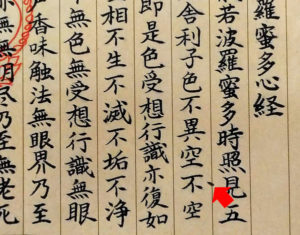 羅蜜多心経
若波羅蜜多時照見五
舎利子色不異空不空
即是色受想行識亦復如
相不生不滅不垢不浄
無色無受想行識無眼
香味触法無眼界乃至
無無明尽乃至無老死